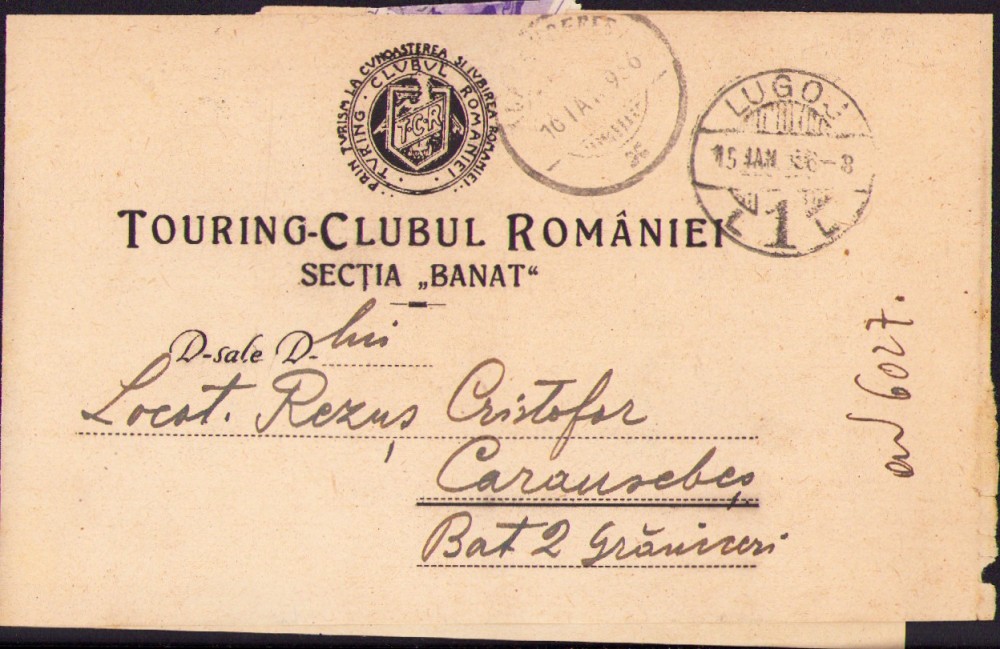 PRIN TURISM LA CUNOAȘTEREA ȘI IUBIREA ROMANIEI
TURING · CLUBUL ROMANIEI
T·C·R
16 IAN. 936
LUGOJ
15 JAN. 36-8
1
TOURING-CLUBUL ROMÂNIEI
SECȚIA „BANAT“
D-sale D-lui
Locot. Rezuș Cristofor
Caransebeș
Bat 2 Grăniceri
6027.